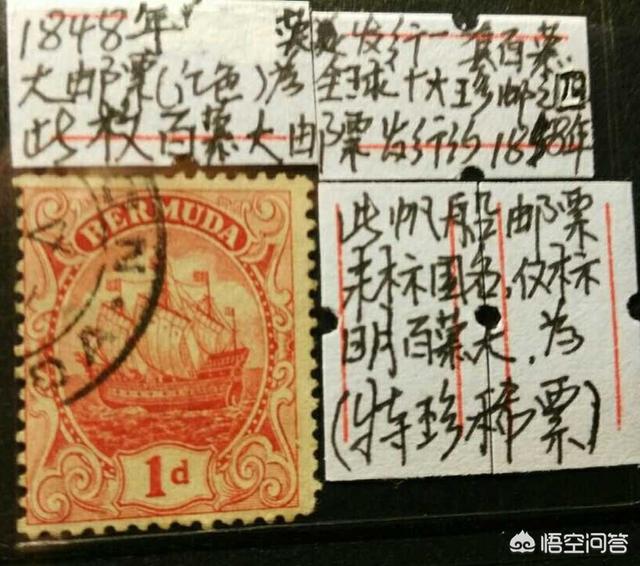 1848年 英属发行一套百慕
大邮票(红色)为全球十大珍邮之四
此枚百慕大邮票发行约1848年
此帆船邮票
未标国名，仅标
明百慕大，为
(特珍稀票)
BERMUDA
1d
悟空问答